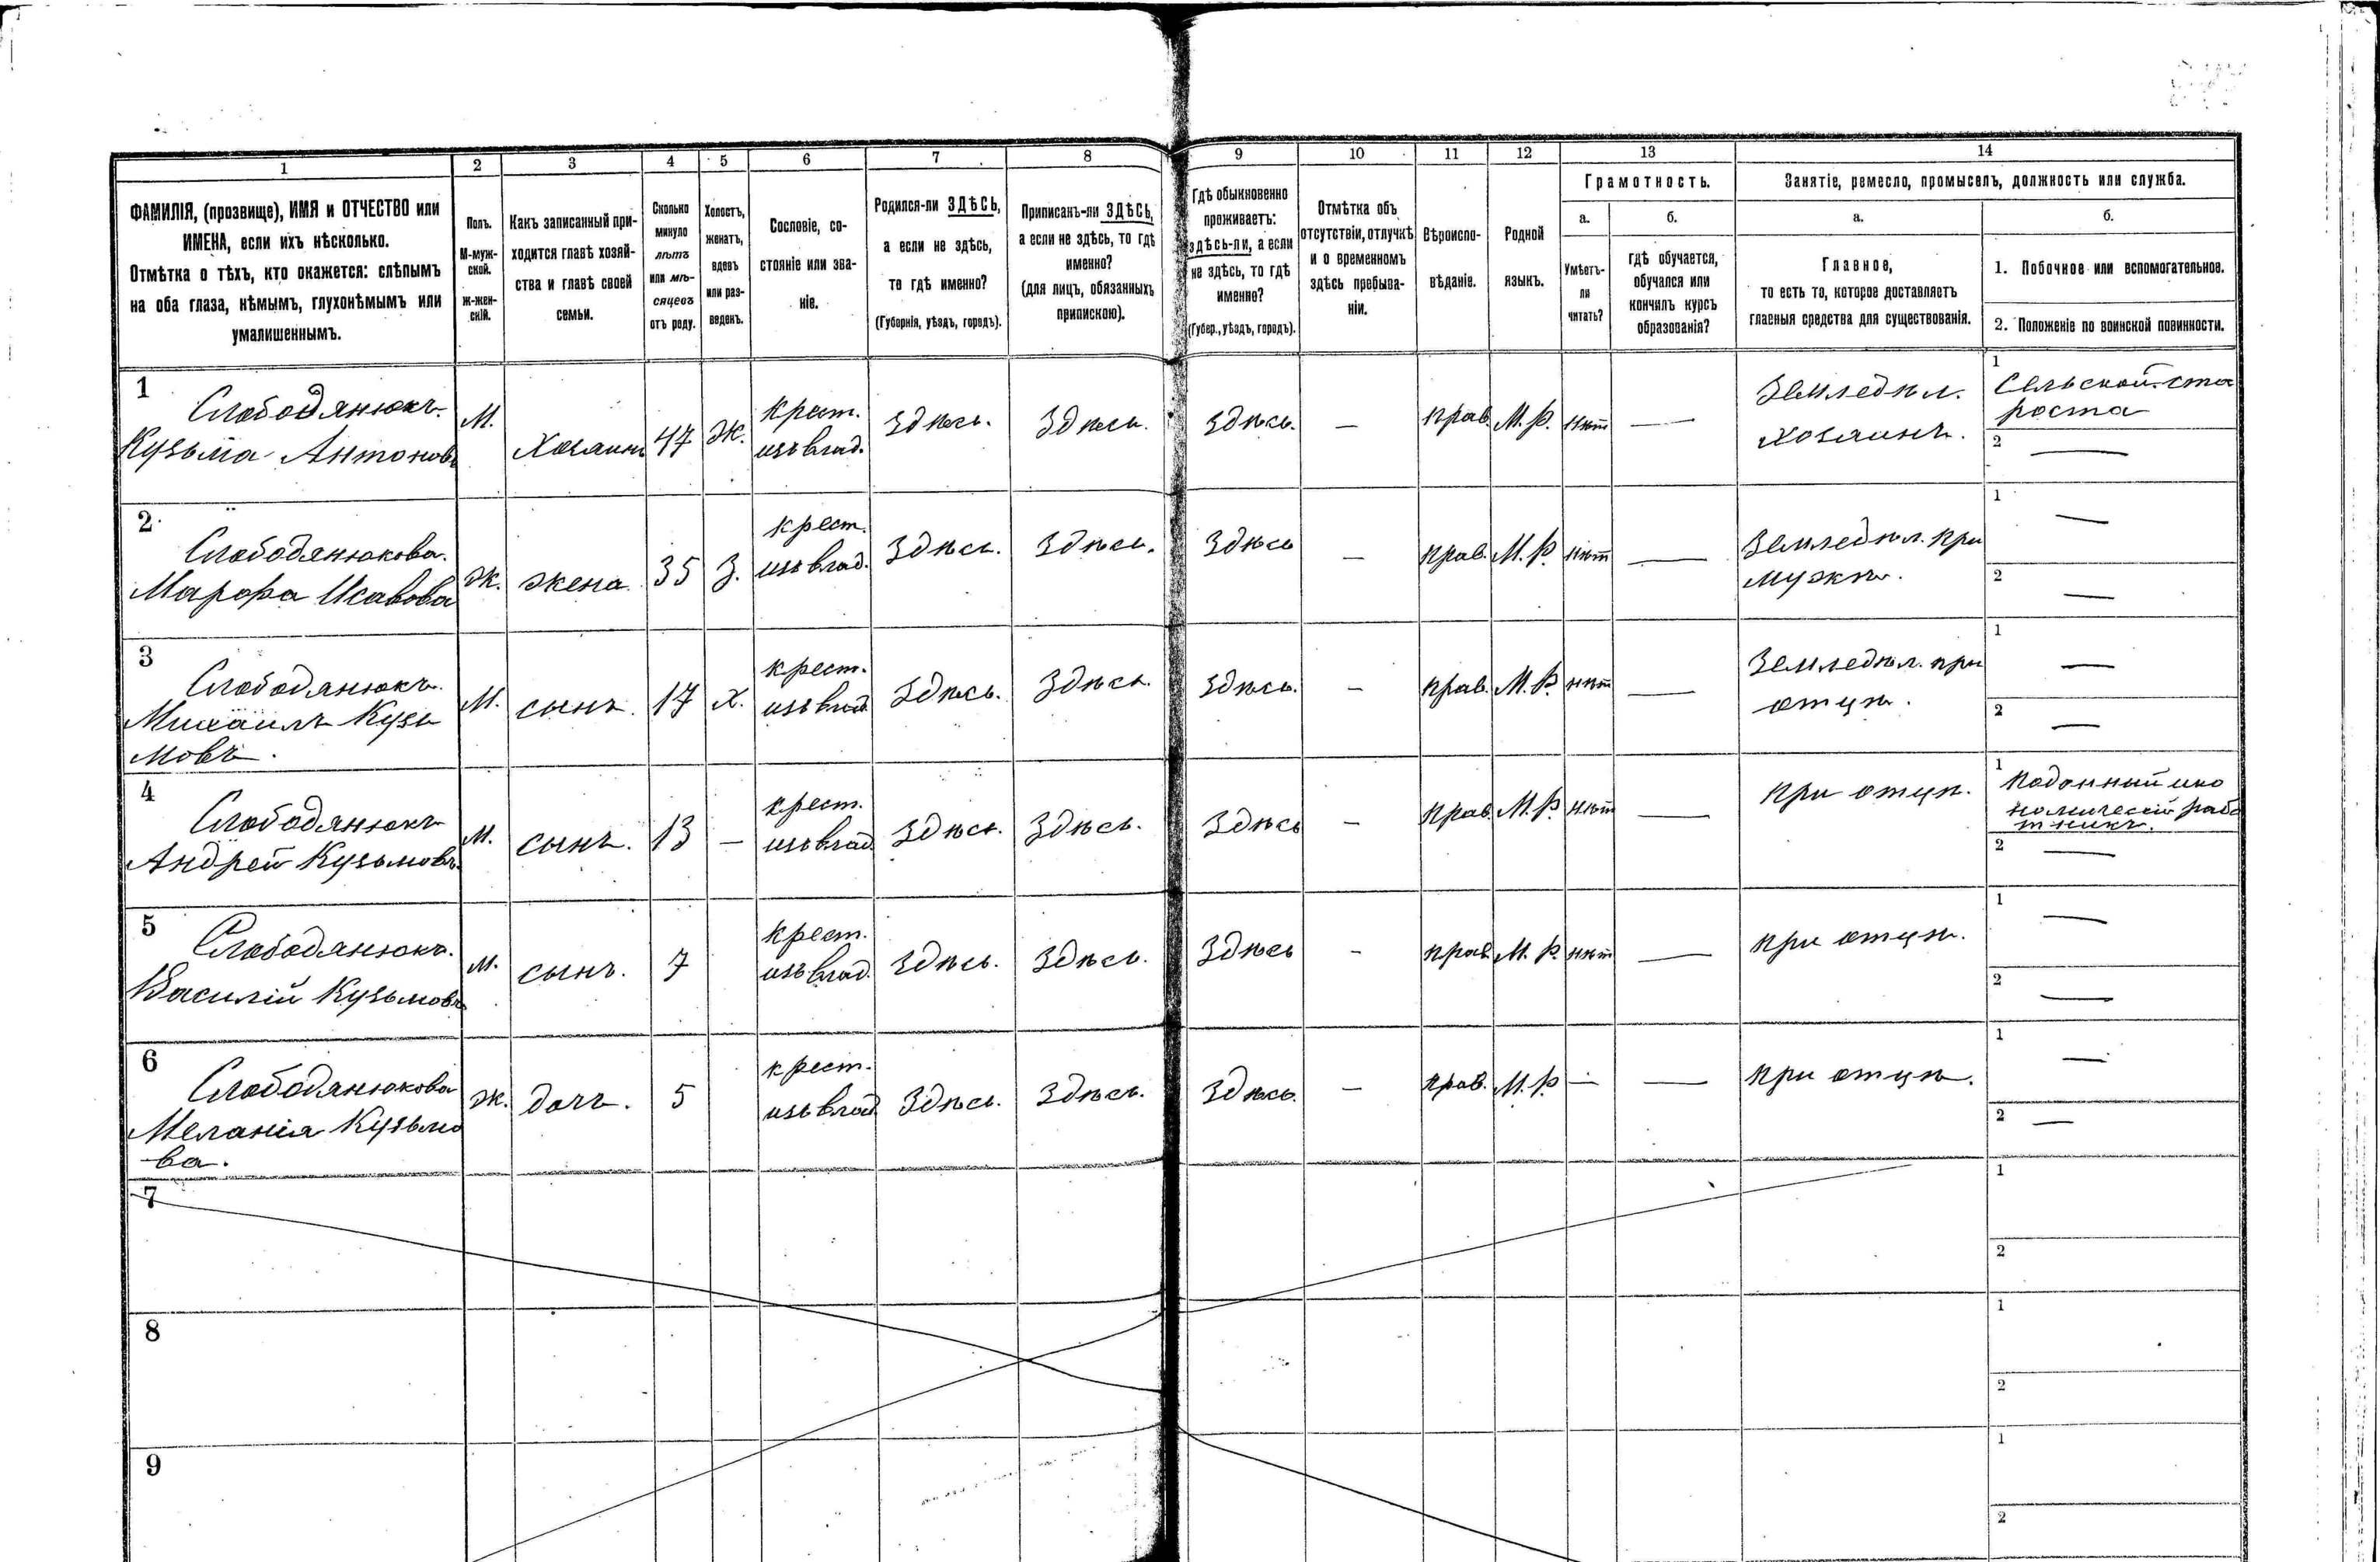 1 2 3 4 5 6 7 8 9 10 11 12 13 14
ФАМИЛІЯ, (прозвище), ИМЯ и ОТЧЕСТВО или
ИМЕНА, если ихъ нѣсколько.
Отмѣтка о тѣхъ, кто окажется: слѣпымъ
на оба глаза, нѣмымъ, глухонѣмымъ или
умалишеннымъ.
Полъ.
М-муж-
ской.
Ж-жен-
скій.
Какъ записанный при-
ходится главѣ хозяй-
ства и главѣ своей
семьи.
Сколько
минуло
лѣтъ
или мѣ-
сяцевъ
отъ роду.
Холостъ,
женатъ,
вдовъ
или раз-
веденъ.
Сословіе, со-
стояніе или зва-
ніе.
Родился-ли ЗДѢСЬ,
а если не здѣсь,
то гдѣ именно?
(Губернія, уѣздъ, городъ).
Приписанъ-ли ЗДѢСЬ,
а если не здѣсь, то гдѣ
именно?
(для лицъ, обязанныхъ
припискою).
Гдѣ обыкновенно
проживаетъ:
здѣсь-ли, а если
не здѣсь, то гдѣ
именно?
(Губер., уѣздъ, городъ).
Отмѣтка объ
отсутствіи, отлучкѣ
и о временномъ
здѣсь пребыва-
ніи.
Вѣроиспо-
вѣданіе.
Родной
языкъ.
Грамотность.
а.
Умѣетъ-
ли
читать?
б.
гдѣ обучается,
обучался или
кончилъ курсъ
образованія?
Занятіе, ремесло, промыселъ, должность или служба.
а.
Главное,
то есть то, которое доставляетъ
главныя средства для существованія.
б.
1. Побочное или вспомогательное.
2. Положеніе по воинской повинности.
1
Слободянюкъ.
Кузьма Антоновъ
М.
Хозяинъ
47
Ж.
крест.
изъ влад.
Здѣсь.
Здѣсь.
Здѣсь.
—
прав.
М. Р.
нѣт
—
Земледѣл.
хозяинъ.
1
Сельской ста
роста
2
—
2
Слободянюкова.
Марфа Исавова
Ж.
жена
35
З.
крест.
изъ влад.
Здѣсь.
Здѣсь.
Здѣсь
—
прав.
М. Р.
нѣт
—
Земледѣл. при
мужѣ.
1
—
2
—
3
Слободянюкъ.
Михаилъ Кузь
мовъ.
М.
сынъ.
17
Х.
крест.
изъ влад
Здѣсь.
Здѣсь.
Здѣсь.
—
прав.
М. Р.
нѣт
—
Земледѣл. при
отцѣ.
1
—
2
—
4
Слободянюкъ
Андрей Кузьмовъ.
М.
сынъ.
13
—
крест.
изъ влад
Здѣсь.
Здѣсь.
Здѣсь
—
прав.
М. Р.
нѣт
—
при отцѣ.
1
рабо
тникъ.
2
—
5
Слободянюкъ.
Василій Кузьмовъ
М.
сынъ.
7
крест.
изъ влад.
Здѣсь.
Здѣсь.
Здѣсь
—
прав
М. Р.
нѣт
—
при отцѣ.
1
—
2
—
6
Слободянюкова
Меланія Кузьмо
ва.
Ж.
дочь.
5
крест.
изъ влад
Здѣсь.
Здѣсь.
Здѣсь.
—
прав.
М. Р
—
—
при отцѣ.
1
—
2
—
7
1
2
8
1
2
9
1
2